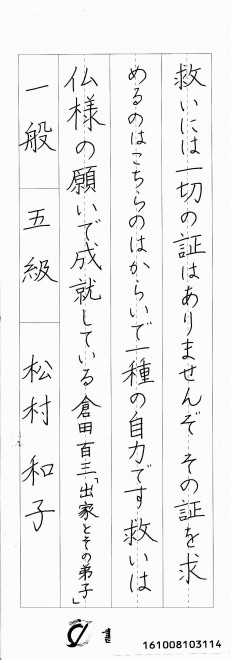 救いには一切の証はありませんぞ その証を求
めるのはこちらのはからいで一種の自力です 救いは
仏様の願いで成就している 倉田百三「出家とその弟子」
一般 五級 松村 和子
161008103114